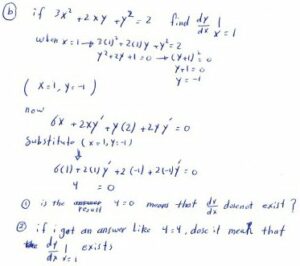 (b) if 3x² + 2xy + y² = 2 find dy/dx | x=1
when x=1 → 3(1)² + 2(1)y + y² = 2
y² + 2y + 1 = 0 → (y+1)² = 0
y+1 = 0
y = -1
(x=1, y=-1)
now
6x + 2xy' + y(2) + 2yy' = 0
Substitute (x=1, y=-1)
↓
6(1) + 2(1)y' + 2(-1) + 2(-1)y' = 0
4 = 0
① is the result 4=0 means that dy/dx doesnot exist?
② if i got an answer like 4=4, dose it mean that
dy/dx | x=1 exists